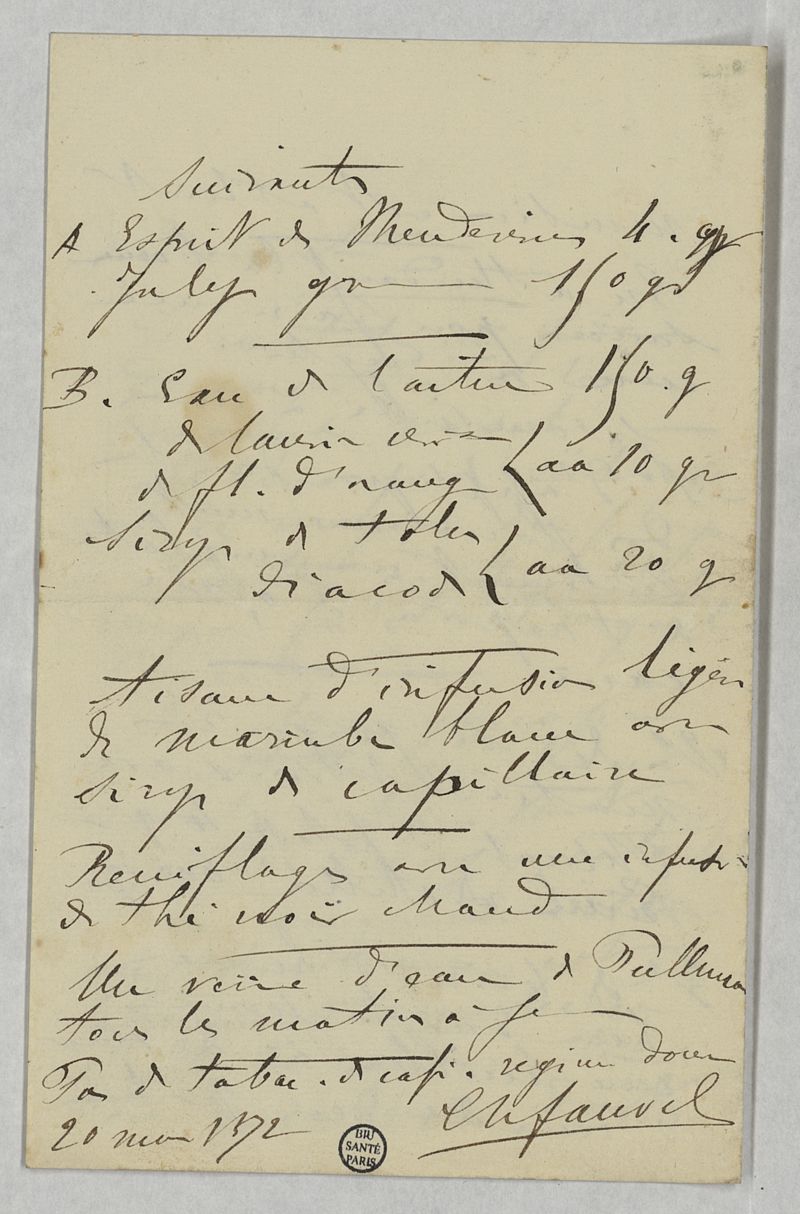 Suivants
A Esprit de Mendererus 4. gr
Julep gr 150 gr
B. Eau de laitue 150. g
de laurier cerise
de fl. d'orang aa 10 gr
Sirop de tolu
diacode aa 20 g
tisane d'infusion légère
de marrube blanc avec
sirop de capillaire
Reniflages avec une infusion
de thé noir chaud
Un verre d'eau de Pullna
tous les matins à
Pas de tabac. de café. régime doux
20 1872 Ch fauvel
BIU
SANTÉ
PARIS